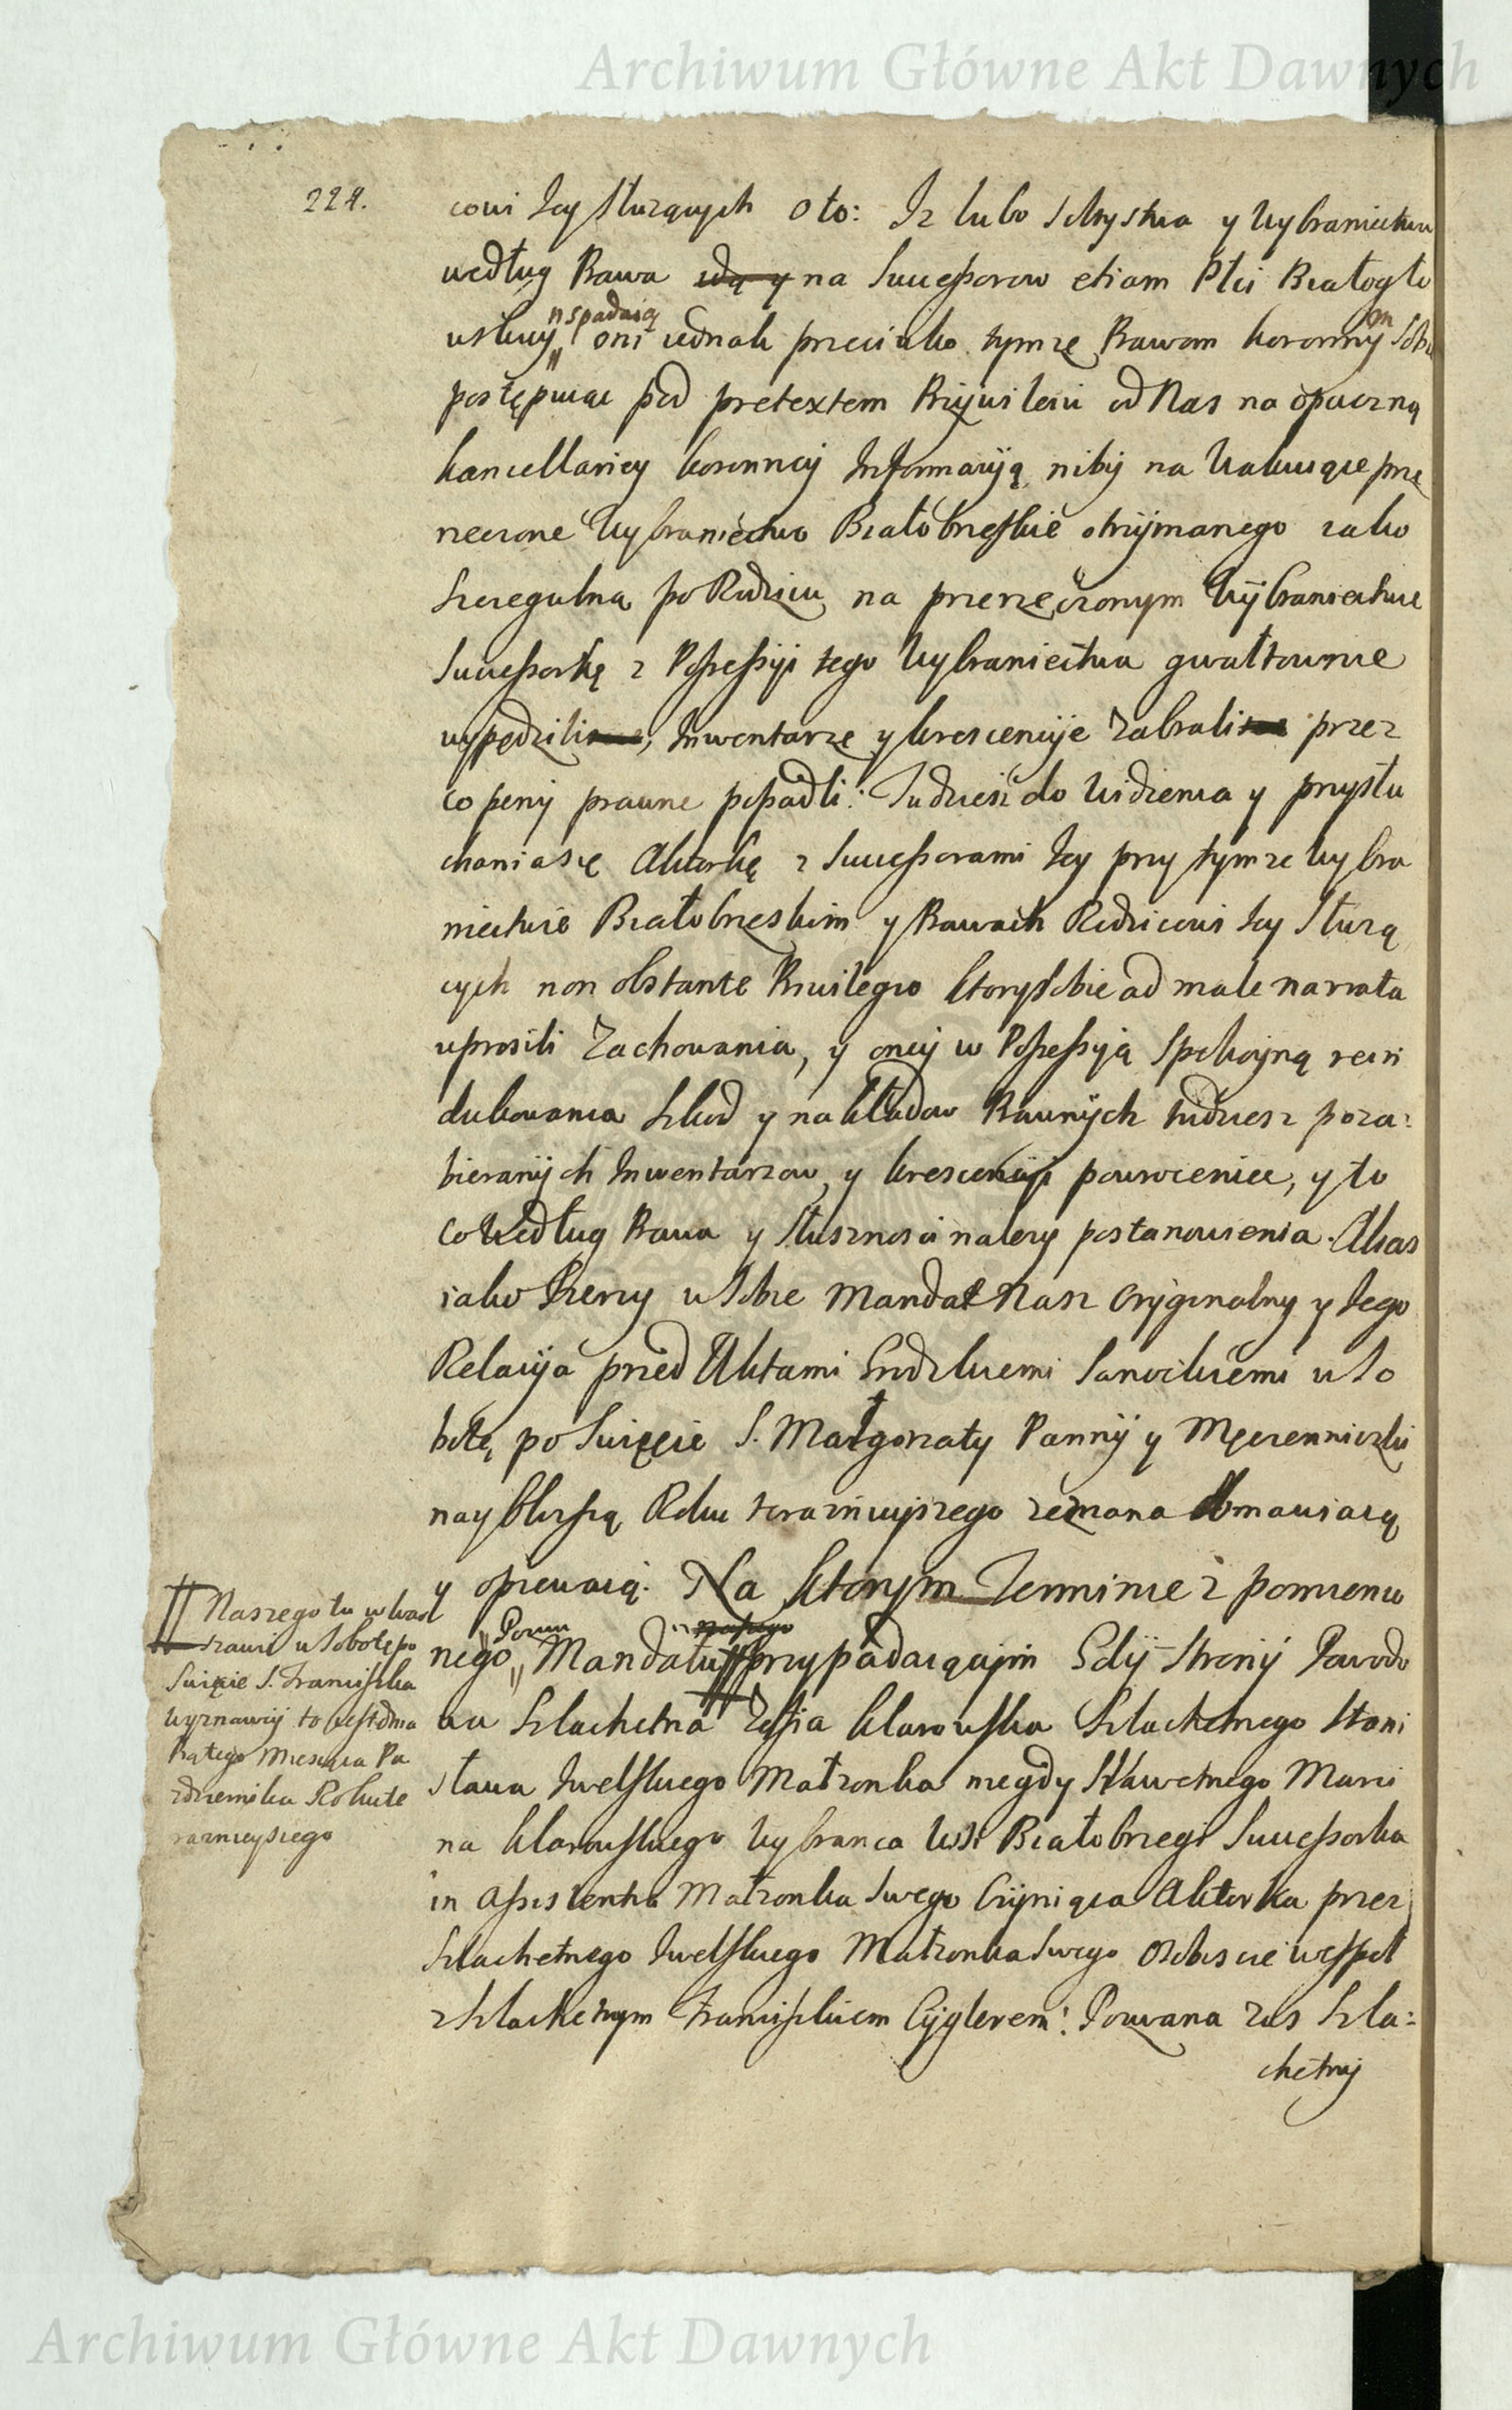 Archiwum Główne Akt Dawnych
224.
cowi Jey służących oto: Iż lubo Sołtystwa y Wybraniectwa
według Prawa idą y na Successorow etiam Płci Białogło
wskiey „spadaią oni iednak przeciwko tymże Prawom koronnym Sobie
postępuiąc pod pretextem Przywileiu od Nas na opaczną
kancellariey koronney Informacyją niby na Wakuiące prze
rzeczone Wybraniectwo Białobrzeskie otrzymanego iako
szczegulną po Rodzicu na przerzeczonym Wybraniectwie
Successorkę z Possessyi tego Wybraniectwa gwałtownie
wypędzili, Inwentarze y krescencyje zabrali przez
co peny prawne popadli: Tudzież do Widzenia y przysłu
chania się Aktorkę z Successorami Jey przy tymże Wybra
niectwie Białobrzeskim y Prawach Rodzicowi Jey służą
cych non obstante Privilegio ktory sobie ad male narrata
uprosili Zachowania, y oney w Possessyją Spokoyną rein
dukowania szkod y nakładow Prawnych tudziesz poza:
bieranych Inwentarzow y krescencyi powrocenia, y to
co według Prawa y słuszności należy postanowienia. Aksas
iako szerzy w sobie Mandat Nasz Oryginalny y Jego
Relacyja przed Aktami Grodzkiemi Sanockiemi w So
botę po Swięcie S. Małgorzaty Panny y Męczenniczki
naybliższą Roku teraznieyszego zeznana obmawiaią
y opiewaią. Na ktorym Terminie z pomienio
nego „Pozwu Mandatu naszego przypadaiącym Gdy strony Powodo
wa Szlachetna Zofia Klarowska Szlachetnego Stani
sława Iwelskiego Małzonka niegdy Sławetnego Marci
na Klarowskiego Wybranca Wsi Białobrzegi Successorka
in assistentia Małzonka Swego Czyniąca Aktorka przez
Szlachetnego Iwelskiego Małzonka Swego Osobiscie wespoł
z Szlachetnym Franciszkiem Cyglerem: Pozwana zas Szla:
chetny
Naszego tu w War
szawie w Sobotę po
Swięcie S. Franciszka
Wyznawcy to iest dnia
Piątego Miesiąca Pa
zdziernika Roku te
raznieyszego
Archiwum Główne Akt Dawnych